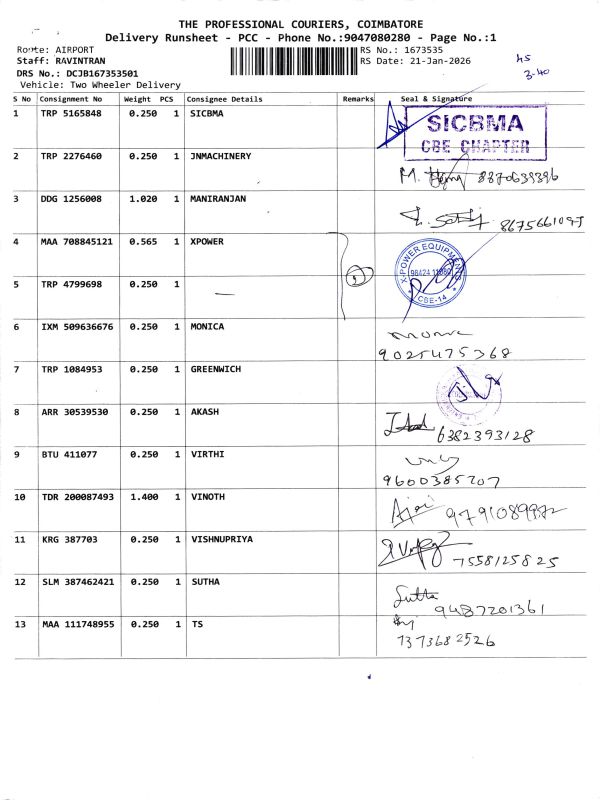 THE PROFESSIONAL COURIERS, COIMBATORE
Delivery Runsheet - PCC - Phone No.:9047080280 - Page No.:1
Route: AIRPORT RS No.: 1673535
Staff: RAVINTRAN RS Date: 21-Jan-2026
DRS No.: DCJB167353501
3-40
Vehicle: Two Wheeler Delivery
S No Consignment No Weight PCS Consignee Details Remarks Seal & Signature
1 TRP 5165848 0.250 1 SICBMA
SICBMA
CBE CHAPTER
2 TRP 2276460 0.250 1 JNMACHINERY
8870639396
3 DDG 1256008 1.020 1 MANIRANJAN
4 MAA 708845121 0.565 1 XPOWER
X-POWER EQUIPMENTS
CBE-14
5 TRP 4799698 0.250 1
6 IXM 509636676 0.250 1 MONICA
9025475368
7 TRP 1084953 0.250 1 GREENWICH
8 ARR 30539530 0.250 1 AKASH
6382393128
9 BTU 411077 0.250 1 VIRTHI
9600385707
10 TDR 200087493 1.400 1 VINOTH
11 KRG 387703 0.250 1 VISHNUPRIYA
7558125825
12 SLM 387462421 0.250 1 SUTHA
Sutha
9487201361
13 MAA 111748955 0.250 1 TS
7373682526